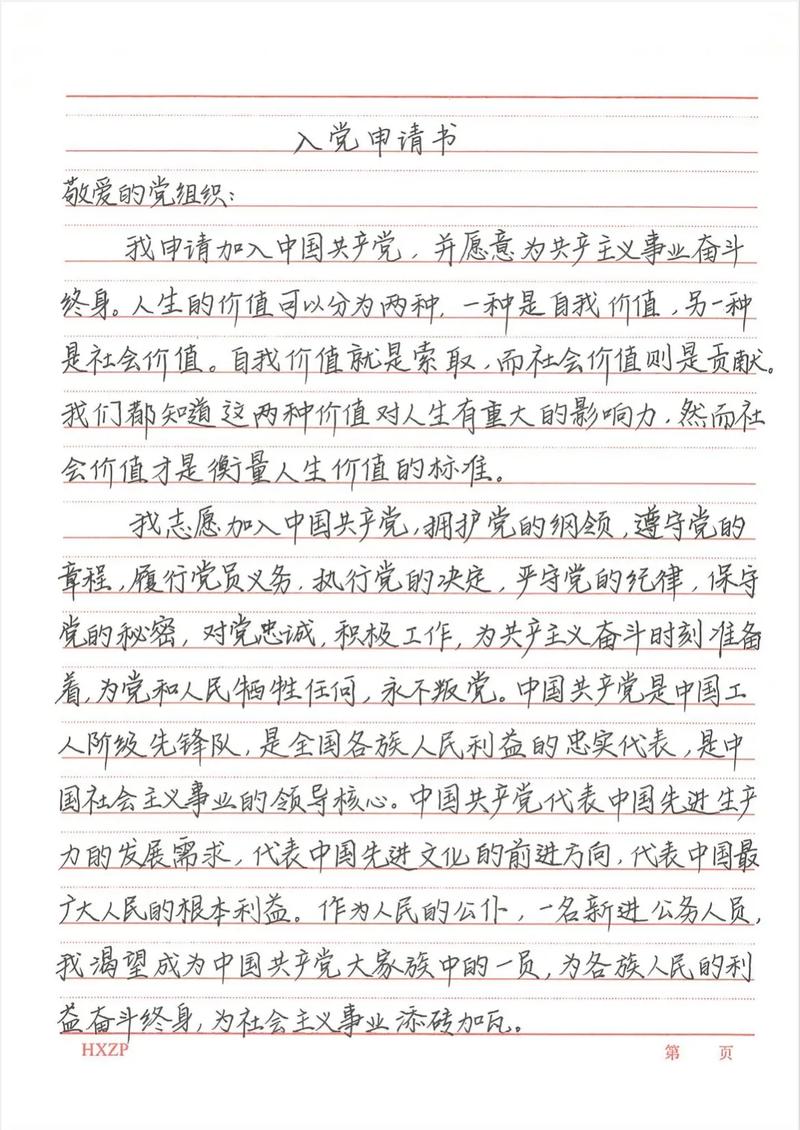 入党申请书
敬爱的党组织:
我申请加入中国共产党,并愿意为共产主义事业奋斗
终身。人生的价值可以分为两种,一种是自我价值,另一种
是社会价值。自我价值就是索取,而社会价值则是贡献。
我们都知道这两种价值对人生有重大的影响力,然而社
会价值才是衡量人生价值的标准。
我志愿加入中国共产党,拥护党的纲领,遵守党的
章程,履行党员义务,执行党的决定,严守党的纪律,保守
党的秘密,对党忠诚,积极工作,为共产主义奋斗时刻准备
着,为党和人民牺牲任何,永不叛党。中国共产党是中国工
人阶级先锋队,是全国各族人民利益的忠实代表,是中
国社会主义事业的领导核心。中国共产党代表中国先进生产
力的发展需求,代表中国先进文化的前进方向,代表中国最
广大人民的根本利益。作为人民的公仆,一名新进公务人员,
我渴望成为中国共产党大家族中的一员,为各族人民的利
益奋斗终身,为社会主义事业添砖加瓦。
HXZP 第 页